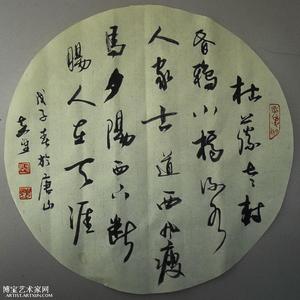 枯藤老树
昏鴉小橋流水
人家古道西風瘦
馬夕陽西下斷
腸人在天涯
戊子春於唐山
博宝艺术家网
ARTIST.ARTXUN.COM